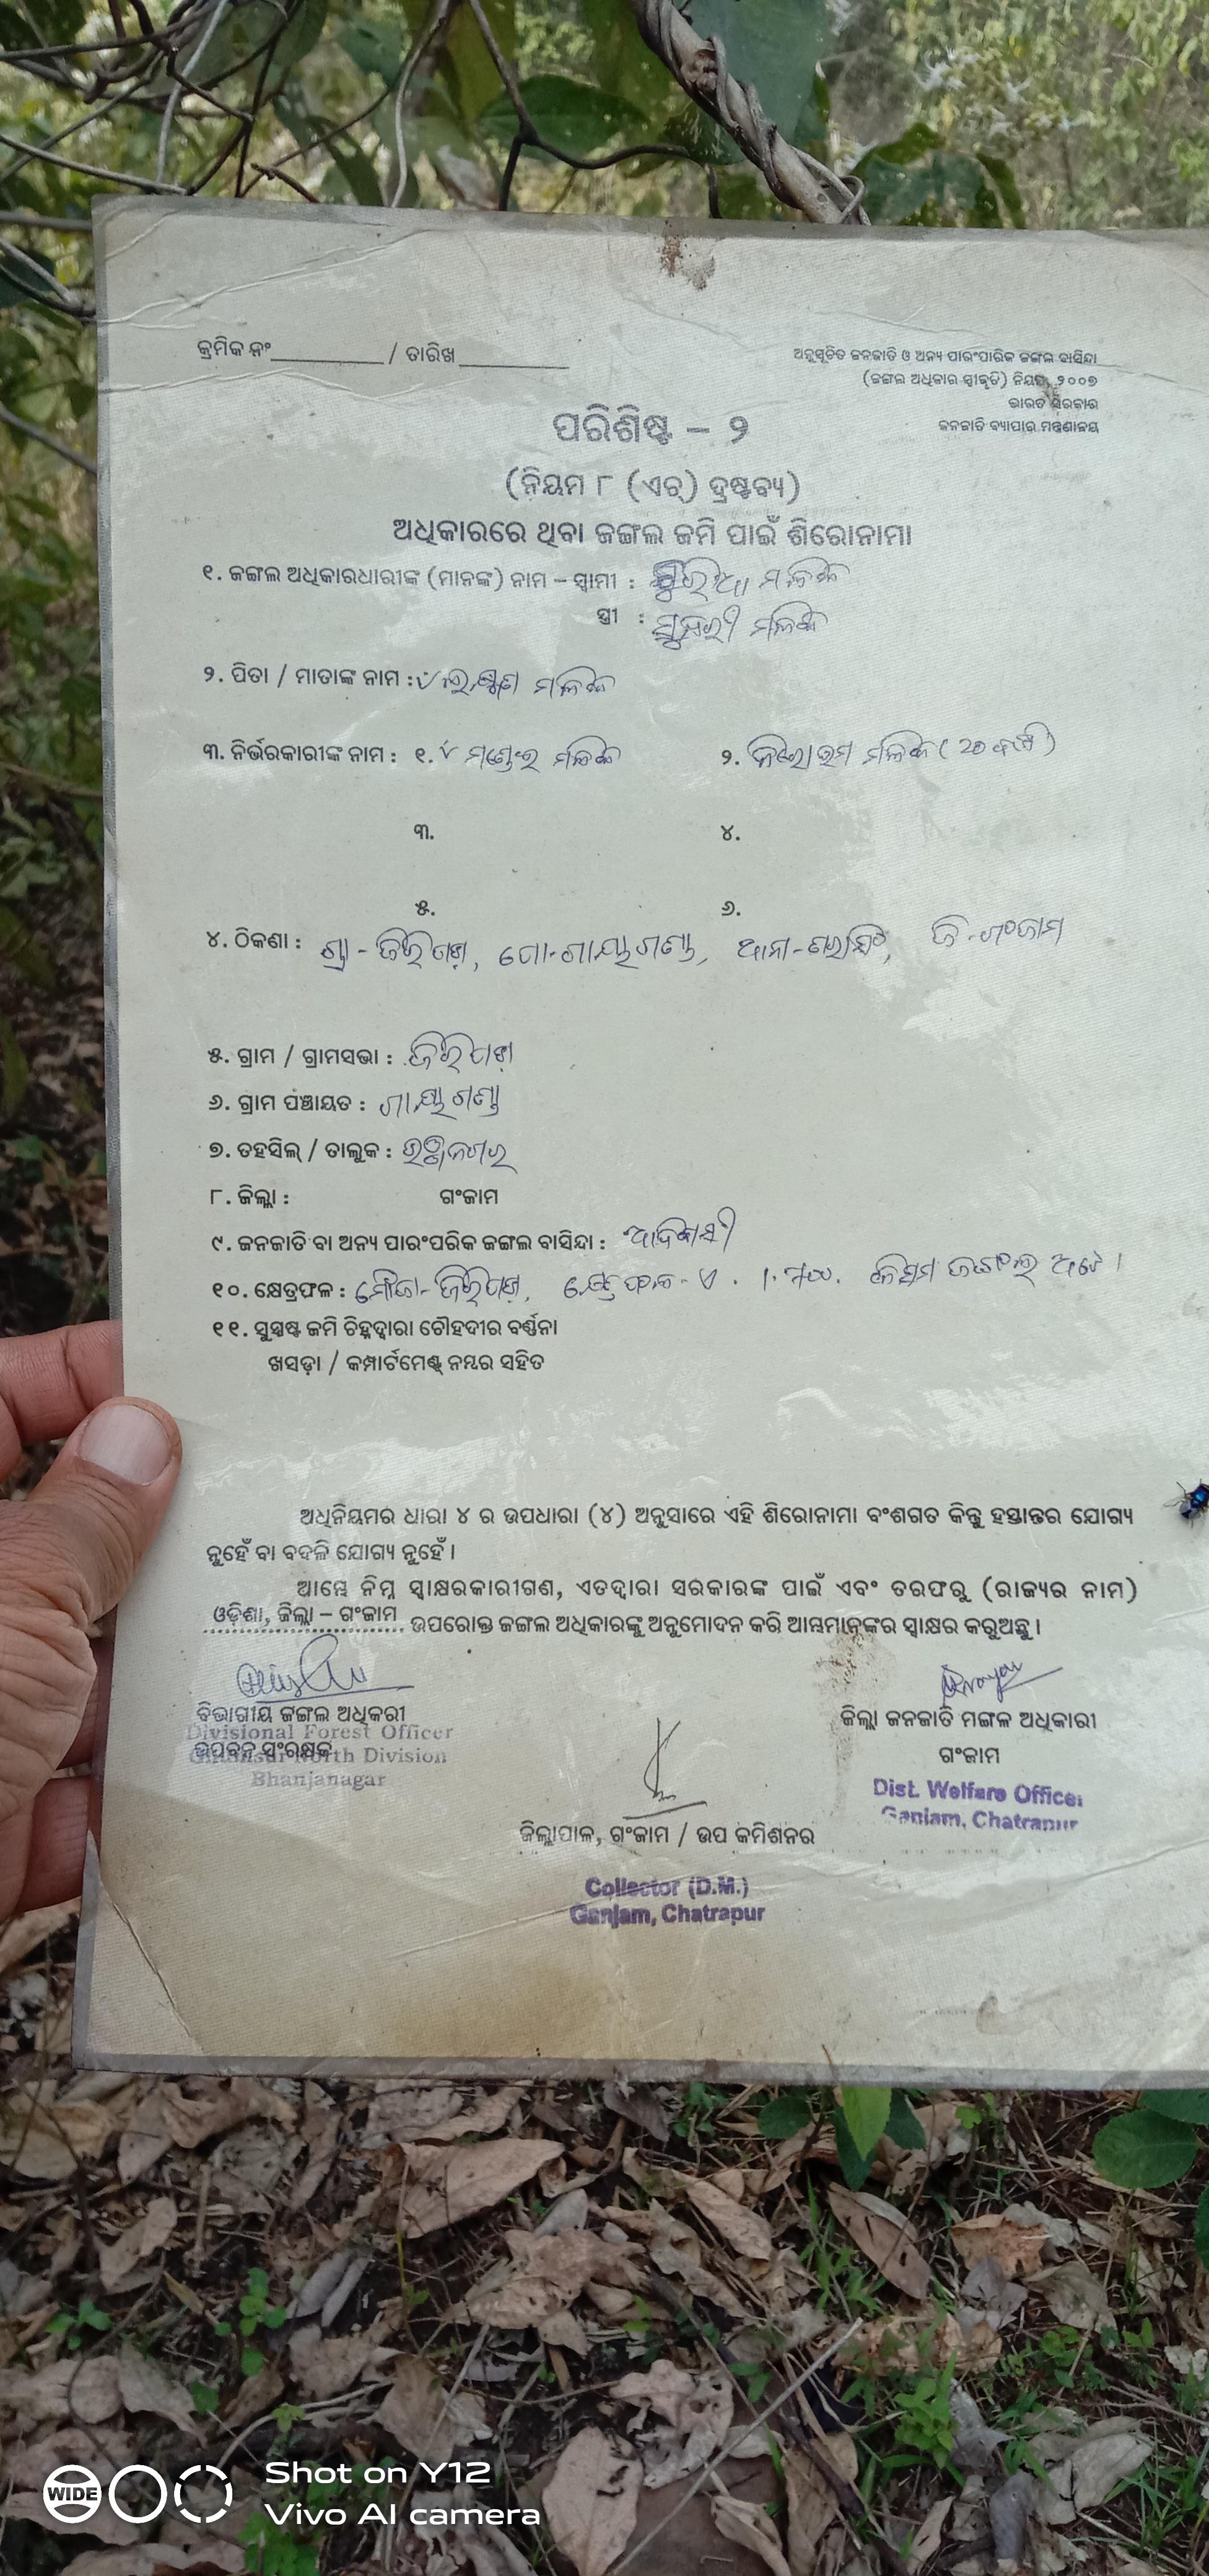 କ୍ରମିକ ନଂ / ତାରିଖ
ଅନୁସୂଚିତ ଜନଜାତି ଓ ଅନ୍ୟ ପାରଂପାରିକ ଜଙ୍ଗଲ ବାସିନ୍ଦା
(ଜଙ୍ଗଲ ଅଧିକାର ସ୍ୱୀକୃତି) ନିୟମ, ୨୦୦୭
ଭାରତ ସରକାର
ଜନଜାତି ବ୍ୟାପାର ମନ୍ତ୍ରଣାଳୟ
ପରିଶିଷ୍ଟ – ୨
(ନିୟମ ୮ (ଏଚ୍) ଦ୍ରଷ୍ଟବ୍ୟ)
ଅଧିକାରରେ ଥିବା ଜଙ୍ଗଲ ଜମି ପାଇଁ ଶିରୋନାମା
୧. ଜଙ୍ଗଲ ଅଧିକାରଧାରୀଙ୍କ (ମାନଙ୍କ) ନାମ – ସ୍ୱାମୀ : ମଳିକ
ସ୍ତ୍ରୀ : ମଳିକ
୨. ପିତା / ମାତାଙ୍କ ନାମ : ମଳିକ
୩. ନିର୍ଭରକାରୀଙ୍କ ନାମ : ୧. ମଳିକ ୨. ମଳିକ
୩. ୪.
୫. ୬.
୪. ଠିକଣା : ଜି - ଗଂଜାମ
୫. ଗ୍ରାମ / ଗ୍ରାମସଭା :
୬. ଗ୍ରାମ ପଞ୍ଚାୟତ :
୭. ତହସିଲ୍ / ତାଲୁକ :
୮. ଜିଲ୍ଲା : ଗଂଜାମ
୯. ଜନଜାତି ବା ଅନ୍ୟ ପାରଂପରିକ ଜଙ୍ଗଲ ବାସିନ୍ଦା : ଆଦିବାସୀ
୧୦. କ୍ଷେତ୍ରଫଳ : ମୌଜା - କିସମ ଜଙ୍ଗଲ ଅଟେ ।
୧୧. ସୁସ୍ପଷ୍ଟ ଜମି ଚିହ୍ନଦ୍ୱାରା ଚୌହଦୀର ବର୍ଣ୍ଣନା
ଖସଡ଼ା / କମ୍ପାର୍ଟମେଣ୍ଟ୍ ନମ୍ବର ସହିତ
ଅଧିନିୟମର ଧାରା ୪ ର ଉପଧାରା (୪) ଅନୁସାରେ ଏହି ଶିରୋନାମା ବଂଶଗତ କିନ୍ତୁ ହସ୍ତାନ୍ତର ଯୋଗ୍ୟ
ନୁହେଁ ବା ବଦଳି ଯୋଗ୍ୟ ନୁହେଁ ।
ଆମ୍ଭେ ନିମ୍ନ ସ୍ୱାକ୍ଷରକାରୀଗଣ, ଏତଦ୍ୱାରା ସରକାରଙ୍କ ପାଇଁ ଏବଂ ତରଫରୁ (ରାଜ୍ୟର ନାମ)
ଓଡ଼ିଶା, ଜିଲ୍ଲା – ଗଂଜାମ ଉପରୋକ୍ତ ଜଙ୍ଗଲ ଅଧିକାରଙ୍କୁ ଅନୁମୋଦନ କରି ଆମ୍ଭମାନଙ୍କର ସ୍ୱାକ୍ଷର କରୁଅଛୁ ।
ବିଭାଗୀୟ ଜଙ୍ଗଲ ଅଧିକରୀ
Divisional Forest Officer
ଉପବନ ସଂରକ୍ଷକ
Ghumsur North Division
Bhanjanagar
ଜିଲ୍ଲା ଜନଜାତି ମଙ୍ଗଳ ଅଧିକାରୀ
ଗଂଜାମ
Dist. Welfare Officer
Ganjam, Chatrapur
ଜିଲ୍ଲାପାଳ, ଗଂଜାମ / ଉପ କମିଶନର
Collector (D.M.)
Ganjam, Chatrapur
WIDE
Shot on Y12
Vivo AI camera